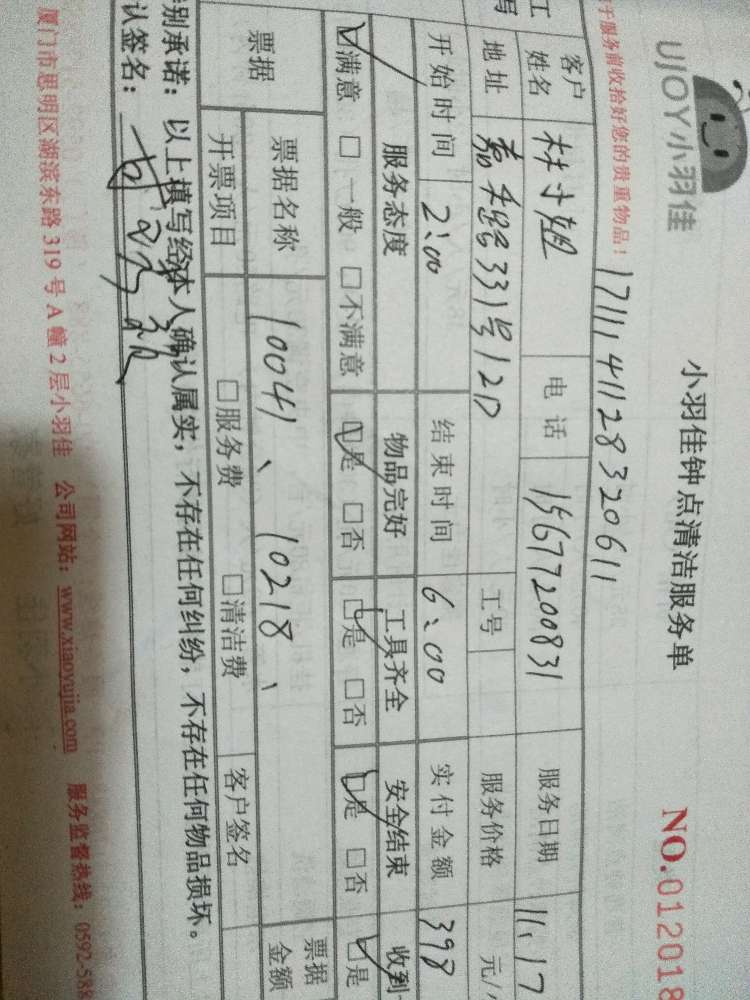 UJOY小羽佳
小羽佳钟点清洁服务单
NO.012018
于服务前收拾好您的贵重物品!
1711141128320611
工
写
客户
姓名
林小姐
电话
15677200831
服务日期
11.17
地址
嘉禾路331号12D
工号
服务价格
元/
开始时间
2:00
结束时间
6:00
实付金额
398
服务态度
物品完好
工具齐全
安全结束
收到
满意 □一般 □不满意
是 □否
是 □否
是 □否
是
票据
票据名称
10041、10218、
票据
金额
开票项目
□服务费 □清洁费
客户签名
别承诺:以上填写经本人确认属实,不存在任何纠纷,不存在任何物品损坏。
认签名:
厦门市思明区湖滨东路 319 号 A 幢 2 层小羽佳 公司网站:www.xiaoyujia.com 服务监督热线:0592-588